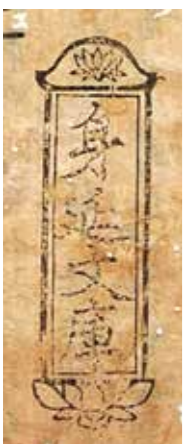 身延文庫